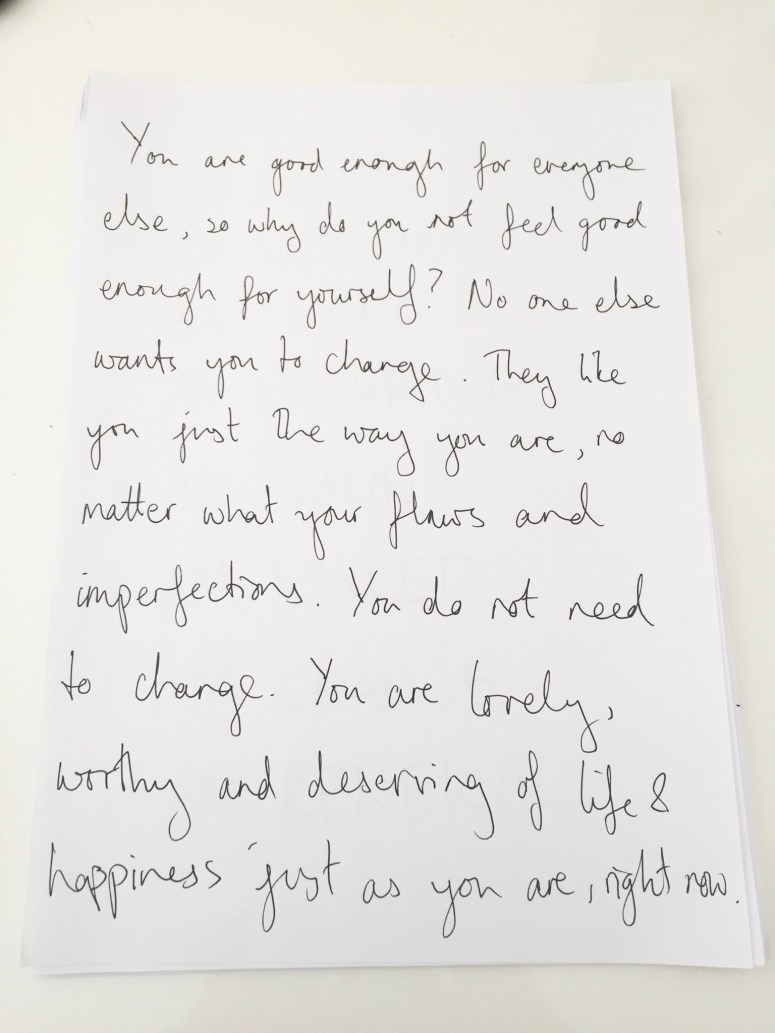 You are good enough for everyone
else, so why do you not feel good
enough for yourself? No one else
wants you to change. They like
you just the way you are, no
matter what your flaws and
imperfections. You do not need
to change. You are lovely,
worthy and deserving of life &
happiness just as you are, right now.